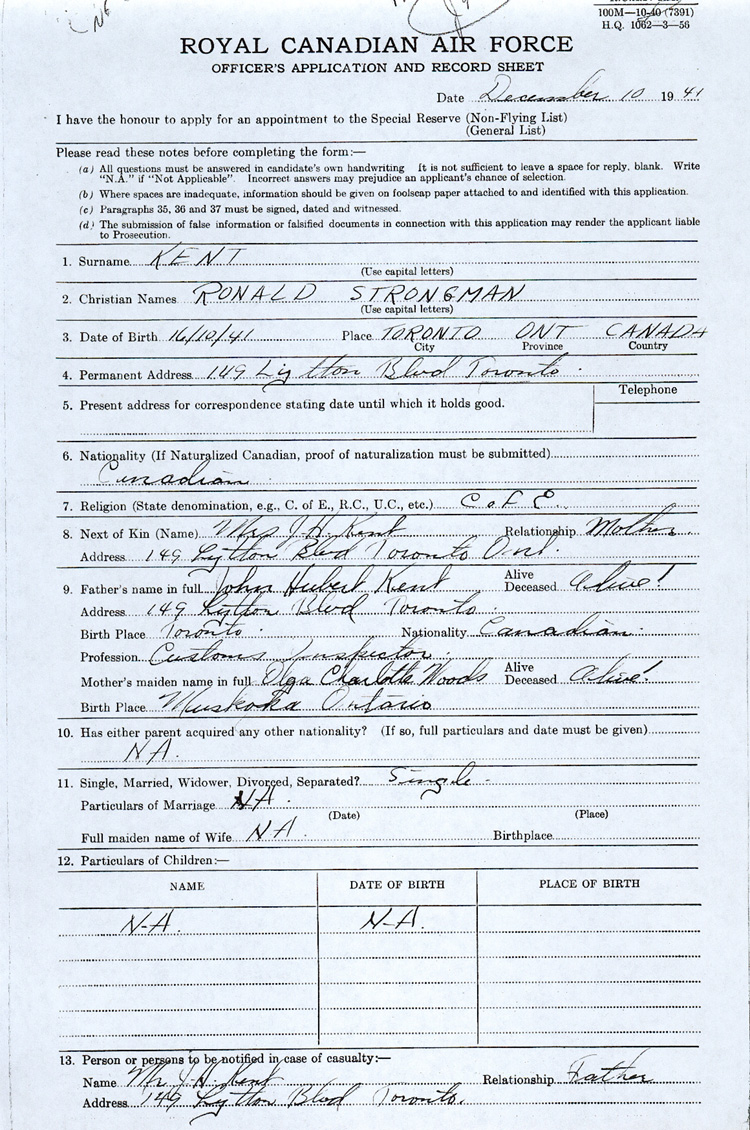 100M—10-40 (7391)
H.Q. 1062—3—56
ROYAL CANADIAN AIR FORCE
OFFICER'S APPLICATION AND RECORD SHEET
Date December 10 19 41
I have the honour to apply for an appointment to the Special Reserve (Non-Flying List)
(General List)
Please read these notes before completing the form:—
(a) All questions must be answered in candidate's own handwriting It is not sufficient to leave a space for reply, blank. Write
"N.A." if "Not Applicable". Incorrect answers may prejudice an applicant's chance of selection.
(b) Where spaces are inadequate, information should be given on foolscap paper attached to and identified with this application.
(c) Paragraphs 35, 36 and 37 must be signed, dated and witnessed.
(d) The submission of false information or falsified documents in connection with this application may render the applicant liable
to Prosecution.
1. Surname KENT
(Use capital letters)
2. Christian Names RONALD STRONGMAN
(Use capital letters)
3. Date of Birth 16/10/41 Place TORONTO ONT CANADA
City Province Country
4. Permanent Address 149 Lytton Blvd Toronto.
Telephone
5. Present address for correspondence stating date until which it holds good.
6. Nationality (If Naturalized Canadian, proof of naturalization must be submitted)
Canadian
7. Religion (State denomination, e.g., C. of E., R.C., U.C., etc.) C of E.
8. Next of Kin (Name) Mrs J. H. Kent Relationship Mother
Address 149 Lytton Blvd Toronto Ont.
9. Father's name in full John Hubert Kent Alive Deceased Alive!
Address 149 Lytton Blvd Toronto.
Birth Place Toronto. Nationality Canadian.
Profession Customs Inspector.
Mother's maiden name in full Olga Charlotte Woods Alive Deceased Alive!
Birth Place Muskoka Ontario
10. Has either parent acquired any other nationality? (If so, full particulars and date must be given)
NA.
11. Single, Married, Widower, Divorced, Separated? Single.
Particulars of Marriage NA.
(Date) (Place)
Full maiden name of Wife NA. Birthplace
12. Particulars of Children:—
NAME DATE OF BIRTH PLACE OF BIRTH
N-A. N-A.
13. Person or persons to be notified in case of casualty:—
Name Mr J. H. Kent Relationship Father
Address 149 Lytton Blvd Toronto.